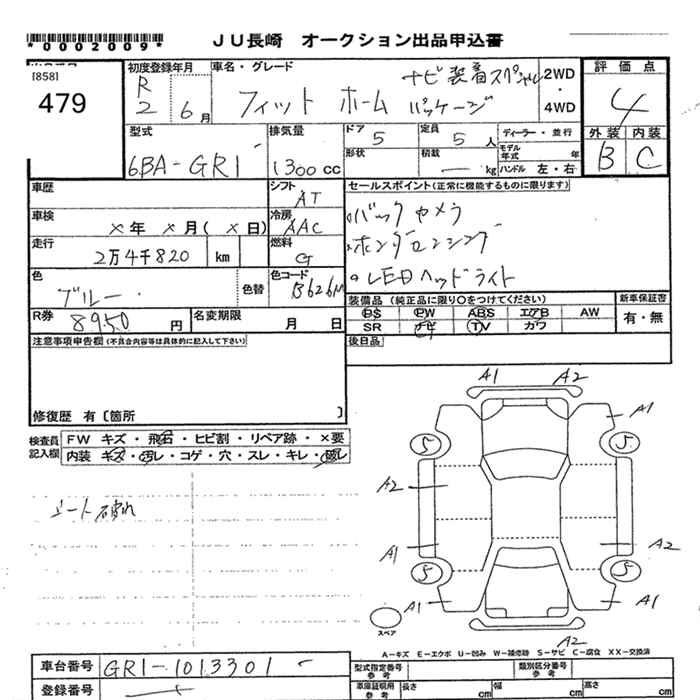 *0002009*
JU長崎 オークション出品申込書
[858]
479
初度登録年月 車名・グレード 評価点
R 2 6月
フィット ホーム ナビ装着スペシャルパッケージ
2WD・4WD
4
外装 内装
B C
型式 排気量 ドア 定員 ディーラー・並行
6BA-GR1 1300cc 5 5人
形状 積載 モデル年式 年
kg ハンドル 左・右
車歴 シフト AT セールスポイント(正常に機能するものに限ります)
車検 ×年 ×月(×日) 冷房 AAC
バックカメラ
走行 2万4千820 km 燃料 G
ホンダセンシング
色 ブルー 色替 色コード B626M
LEDヘッドライト
装備品(純正品に限り○をつけてください) 新車保証書
PS PW ABS エアB AW 有・無
SR ナビ TV カワ
R券 8950円 名変期限 月 日
注意事項申告欄(不具合内容等は具体的に記入して下さい) 後日品
修復歴 有〔箇所 〕
検査員記入欄
FW キズ・飛石・ヒビ割・リペア跡・×要
内装 キズ・汚レ・コゲ・穴・スレ・キレ・破レ
シート破れ
A1 A2
A1
5 5
A2
A1 A2
5 5
A1 A1
スペア
A2
A-キズ E-エクボ U-凹み W-補修跡 S-サビ C-腐食 XX-交換済
車台番号 GR1-1013301
型式指定番号参考 類別区分番号参考
登録番号
車庫証明用参考 長さ cm 幅 cm 高さ cm